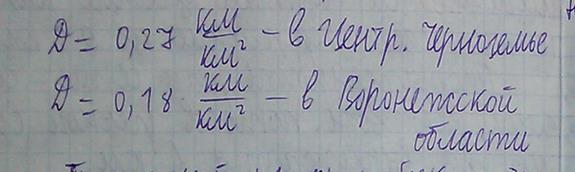 D = 0,27 км/км² – в Центр. Черноземье
D = 0,18 км/км² – в Воронежской
области